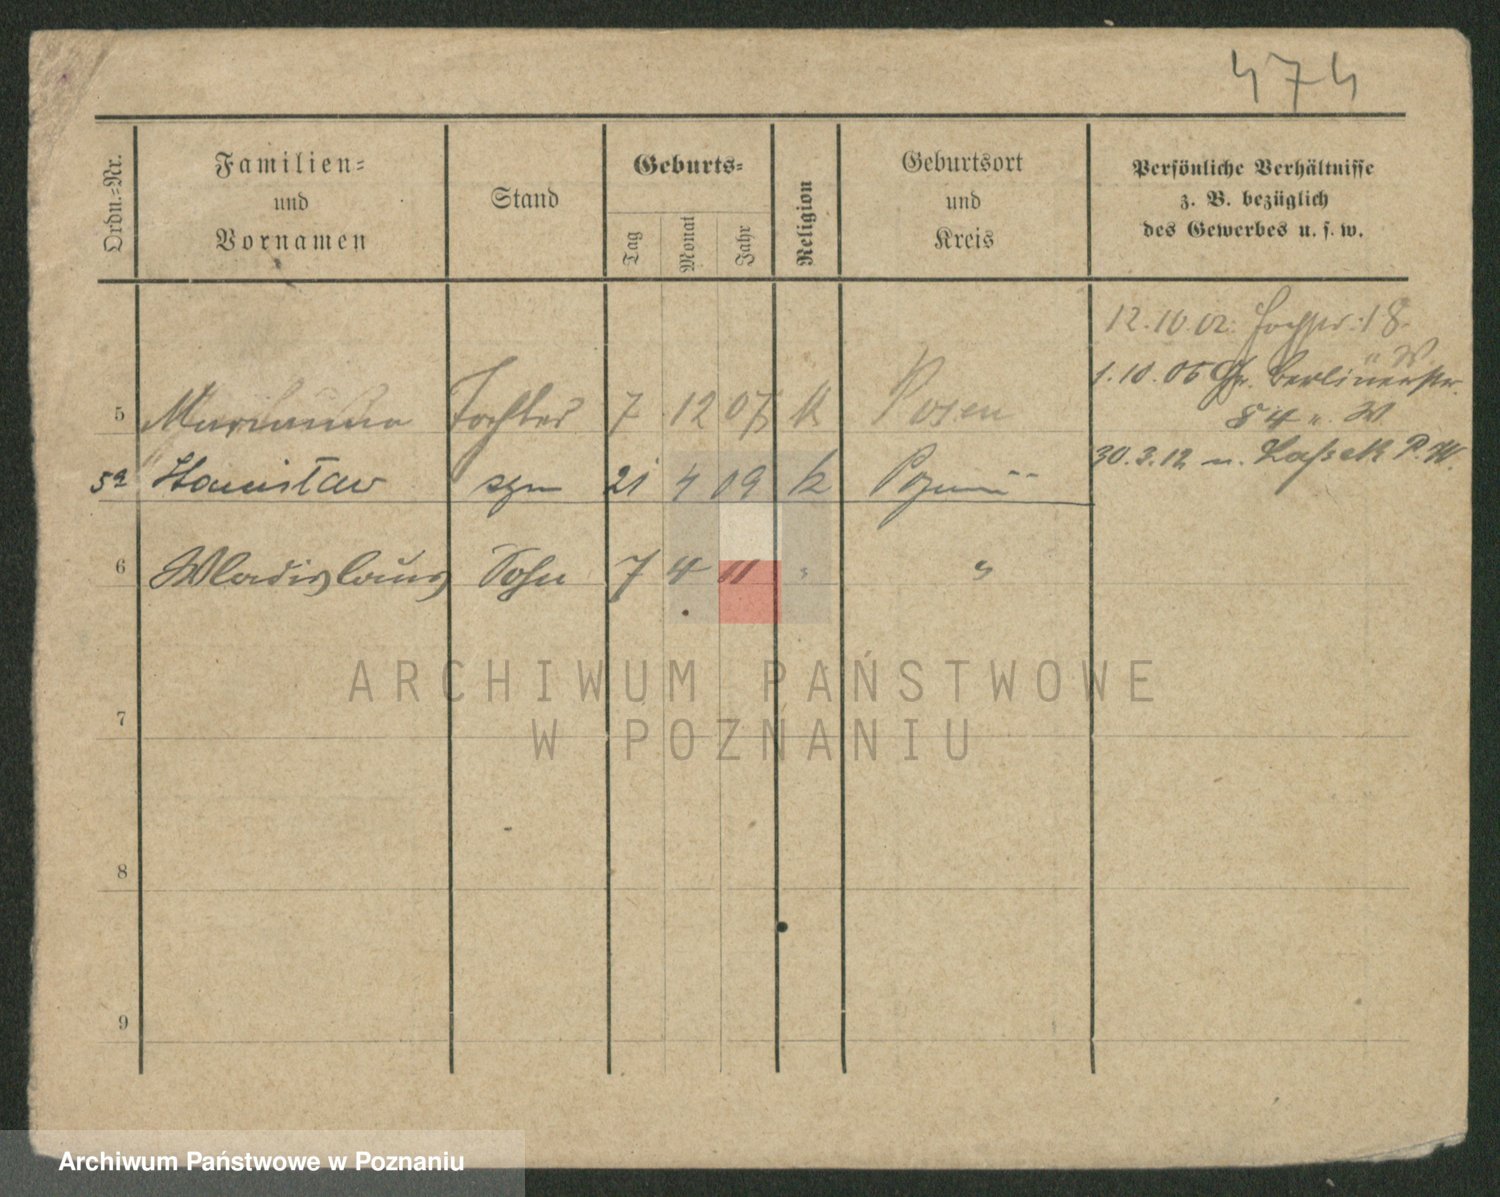 474
Ordn.-Nr.
Familien-
und
Vornamen
Stand
Geburts-
Tag
Monat
Jahr
Religion
Geburtsort
und
Kreis
Persönliche Verhältnisse
z. B. bezüglich
des Gewerbes u. s. w.
12.10.02. 18.
1.10.06 Gr. Berlinerstr.
84 " W
5 Marianna Tochter 7 12 07 k Posen
30.3.12 n. P. W.
5a Stanisław syn 21 4 09 k Poznań
6 Wladislaus Sohn 7 4 11 " "
ARCHIWUM PAŃSTWOWE
W POZNANIU
7
8
9
Archiwum Państwowe w Poznaniu